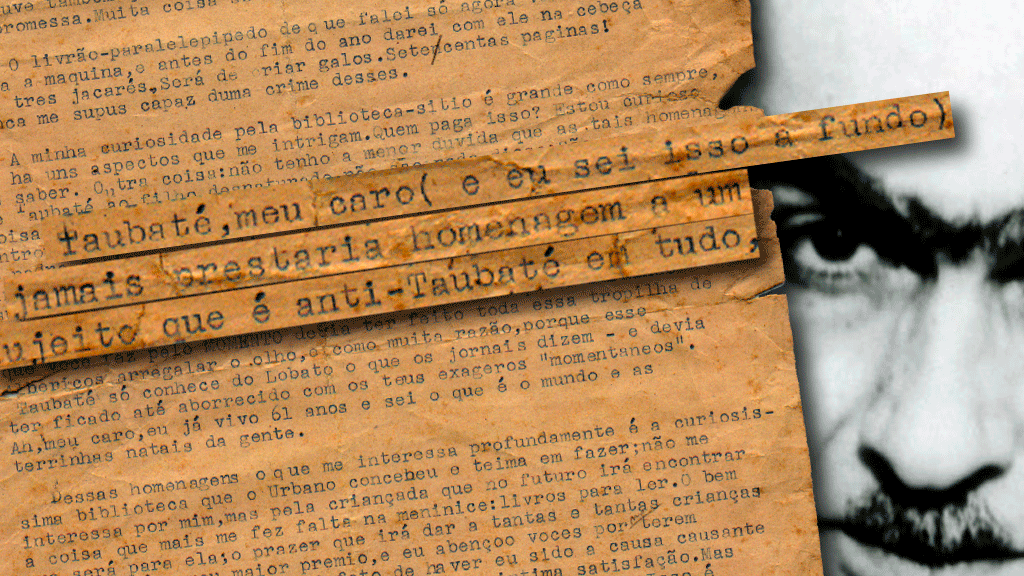 promessa.Muita coisa
O livrão-paralelepipedo de que falei só agora
a maquina,e antes do fim do ano darei com ele na cabeça
tres jacarés,Será de riar galos.Setecentas paginas!
ca me supus capaz duma crime desses.
A minha curiosidade pela biblioteca-sitio é grande como sempre,
ha uns aspectos que me intrigam.Quem paga isso? Estou curioso
saber. Outra coisa:não tenho a menor duvida que as tais homenag
Taubaté ao filho desnaturado
taubaté,meu caro( e eu sei isso a fundo)
jamais prestaria homenagem a um
ujeito que é anti-Taubaté em tudo,
MOMENTO devia ter feito toda essa tropilha de
bericos arregalar o olho,e como muita razão,porque esse
Taubaté só conhece do Lobato o que os jornais dizem - e devia
ter ficado até aborrecido com os teus exageros "momentaneos".
Ah,meu caro,eu já vivo 61 anos e sei o que é o mundo e as
terrinhas natais da gente.
Dessas homenagens o que me interessa profundamente é a curiosis-
sima biblioteca que o Urbano concebeu e teima em fazer;não me
interessa por mim,mas pela criançada que no futuro irá encontrar
a coisa que mais me fez falta na meninice:livros para ler.O bem
será para ela;o prazer que irá dar a tantas e tantas crianças
maior premio,e eu abençoo voces por terem
de haver eu sido a causa causante
intima satisfação.Mas